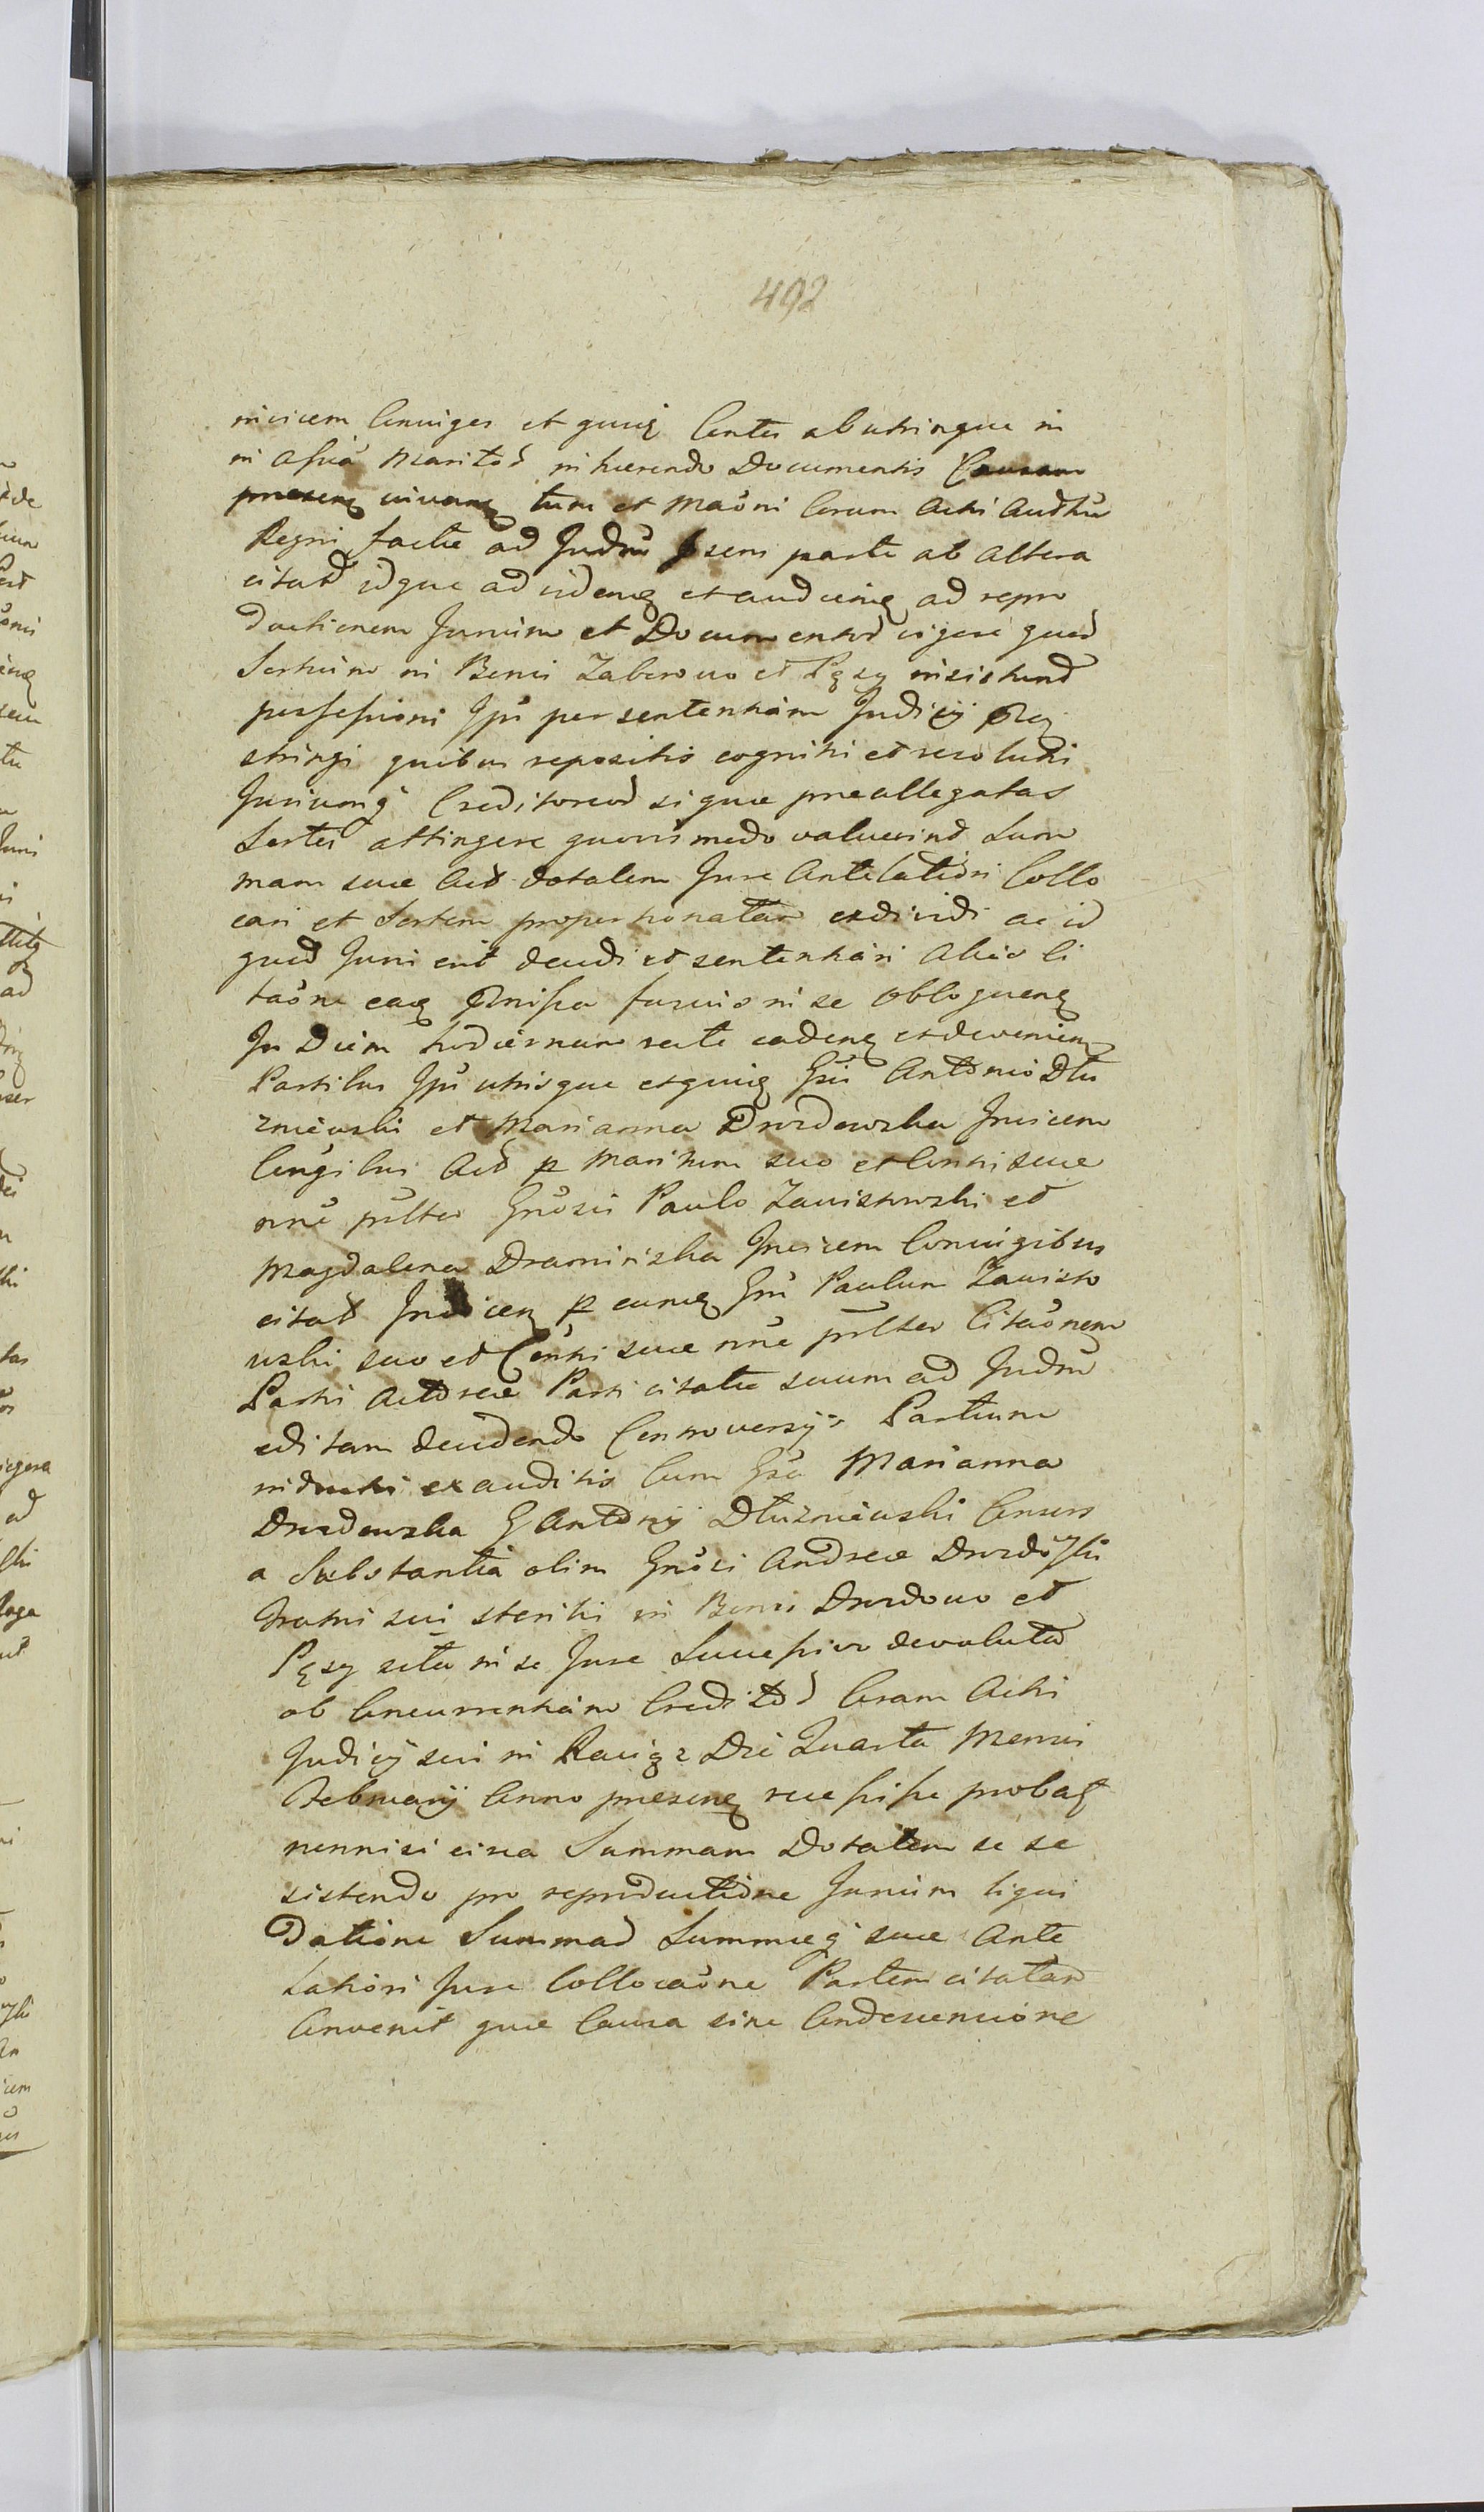 492
invicem Coniuges et quivis Contes ab utrinque in
in Assia Maritod inhærendo Documentis Causam
præsenq tum et Maoni Coram Actis
Regni factæ ad Judm psem parte ab altera
citat idque ad videnq et audienq ad repro
ductionem Jurium et Documentor quod
Sortium in Bonis Zaborowo et Pęsy insistend
possessioni Jpu per sententiam Judicij
stringi quibus repositis cogniti et resoluti
Creditorod si quæ præallegatas
Sortes attingere quovis modo valuerint Sum
mam suæ Act dotalem Jure Antelationi Collo
cari et Sortem proportionatam exdividi ac id
quod Juris erit decidi et sententiari alias Ci
taone eaq in se obloquenq
In Diem hodiernum recte cadenq et devenienq
Partibus Jpu utrisque et quivis Gsu Antonio Dłu
zniewski et Marianna Drozdowska Invicem
Congibus Act p Maritum suo et Contis suæ
nne pnlter Gnosis Paulo Zawistowski et
Magdalena Dramińska Invicem Coniugibus
citat Invicem p eunq Gsu Paulum Zawisto
wski suo et Contis suæ nne pnlter Citaonem
Parti Actoreæ Parti citatæ suum ad Judm
editam decidendo Controversijs Partium
inducti exauditis Cum Gsa Marianna
Drozdowska G Antonij Dłuzniewski Consors
a Substantia olim Gnosi Andreæ Drozdoski
fratris sui sterilis in Bonis Drozdowo et
Pęsy sita in se Jure Successivo devoluta
ob Concurrentiam Creditod Coram Actis
Judicij sui in Die Quarta Mensis
Februarij Anno præsenq recessisse probat
nonnisi circa Summam Dotalem se se
sistendo pro reproductione Jurium liqui
Datione Summad Summæq suæ Ante
Lationi Jure Collocaone Partem citatam
Convenit quæ Causa sine Condescensione